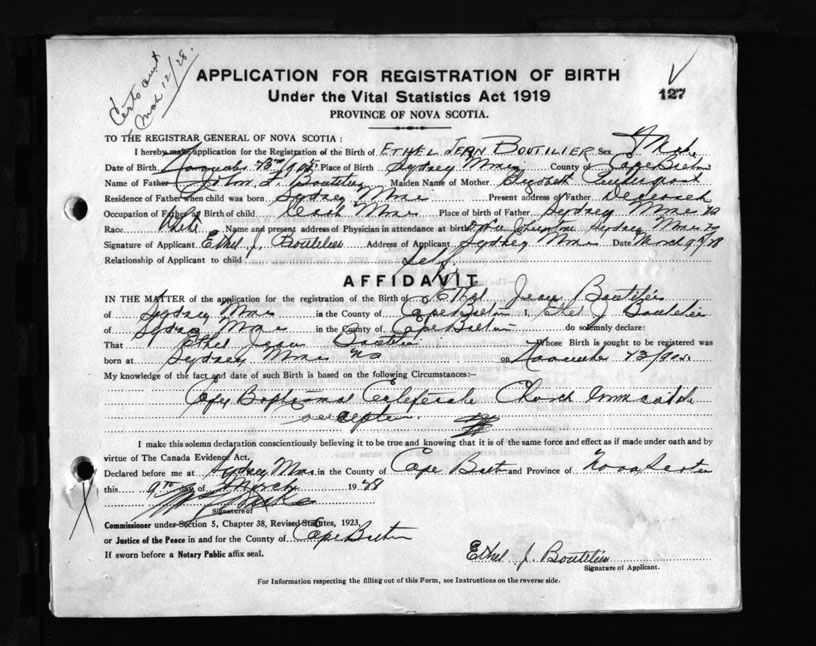 Certs out
Mch 12/28.
APPLICATION FOR REGISTRATION OF BIRTH
Under the Vital Statistics Act 1919
127
PROVINCE OF NOVA SCOTIA.
TO THE REGISTRAR GENERAL OF NOVA SCOTIA:
I hereby make application for the Registration of the Birth of ETHEL JEAN BOUTILIER Sex
Date of Birth Place of Birth Sydney Mines County of Cape Breton
Name of Father Boutilier Maiden Name of Mother
Residence of Father when child was born Sydney Mines Present address of Father Deceased
Occupation of Father at Birth of child Place of birth of Father Sydney Mines NS
Race White Name and present address of Physician in attendance at birth Sydney Mines NS
Signature of Applicant Ethel J. Boutilier Address of Applicant Sydney Mines Date March 9/28
Relationship of Applicant to child Self
AFFIDAVIT
IN THE MATTER of the application for the registration of the Birth of Ethel Jean Boutilier
of Sydney Mines in the County of Cape Breton I, Ethel J Boutilier
of Sydney Mines in the County of Cape Breton do solemnly declare:
That Ethel Jean Boutilier Whose Birth is sought to be registered was
born at Sydney Mines NS on
My knowledge of the fact and date of such Birth is based on the following Circumstances:—
Copy Baptismal Certificate Church
I make this solemn declaration conscientiously believing it to be true and knowing that it is of the same force and effect as if made under oath and by
virtue of The Canada Evidence Act.
Declared before me at Sydney Mines in the County of Cape Breton and Province of Nova Scotia
this 9th day of March 1928
Signature of
Commissioner under Section 5, Chapter 38, Revised Statutes, 1923,
or Justice of the Peace in and for the County of Cape Breton
If sworn before a Notary Public affix seal.
Ethel J. Boutilier
Signature of Applicant.
For Information respecting the filling out of this Form, see Instructions on the reverse side.